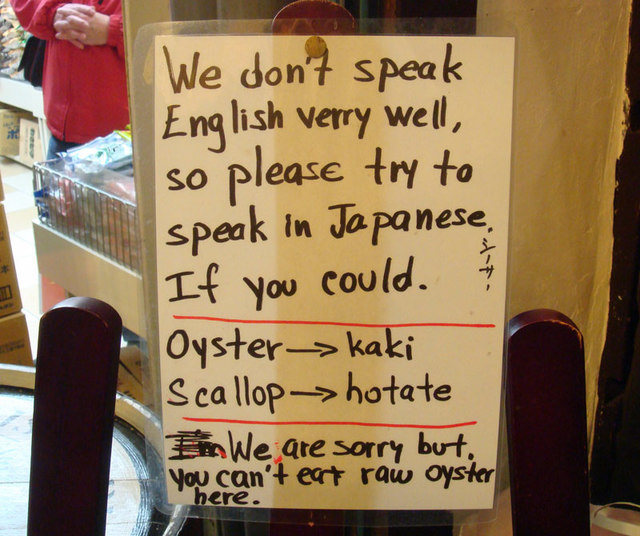 We don't speak
English verry well,
so please try to
speak in Japanese.
シーサー
If you could.
Oyster → kaki
Scallop → hotate
I'm We are sorry but,
you can't eat raw oyster
here.